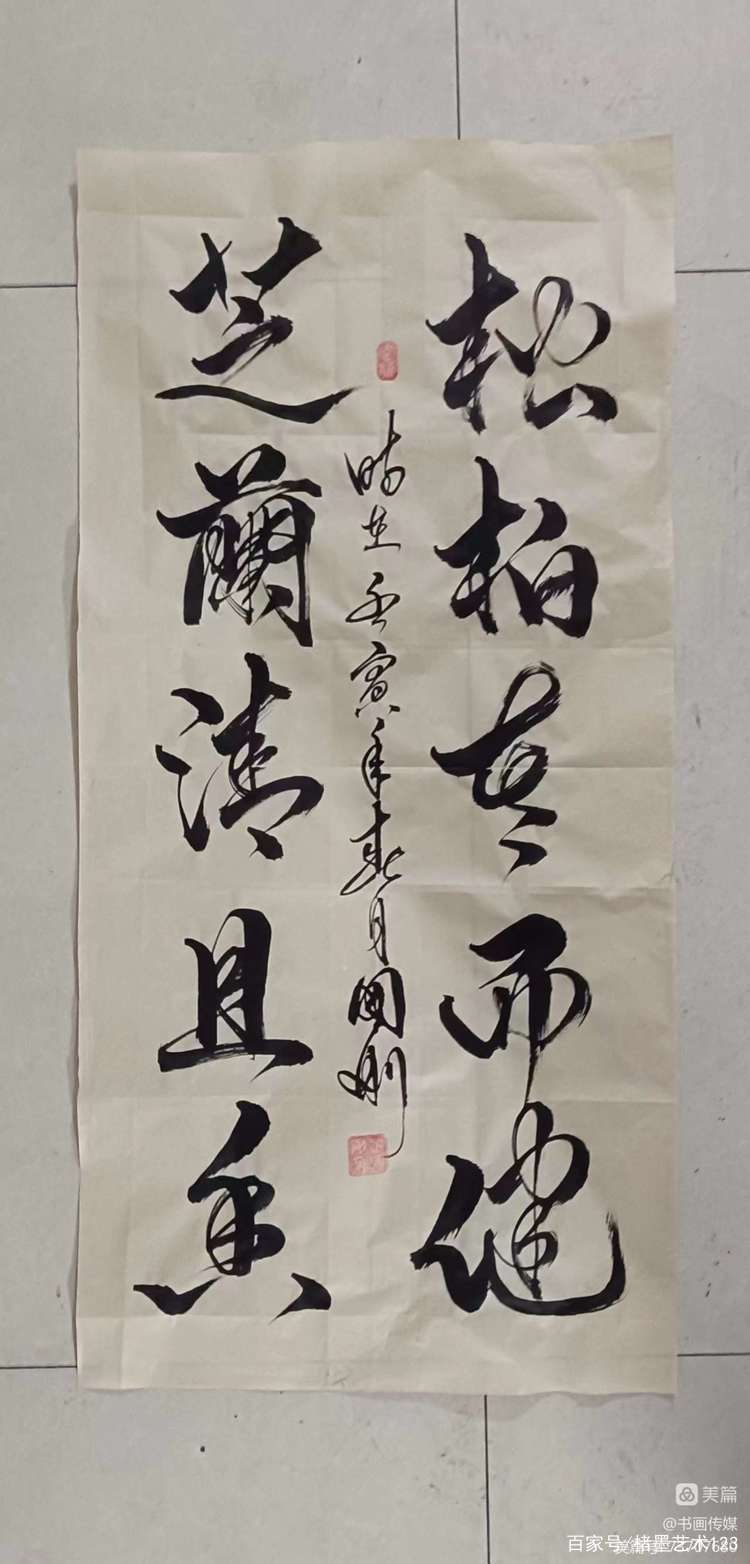 松柏老而健
時在壬寅年春月國剛
芝蘭清且香
美篇
@书画传媒
百家号/楮墨艺术123